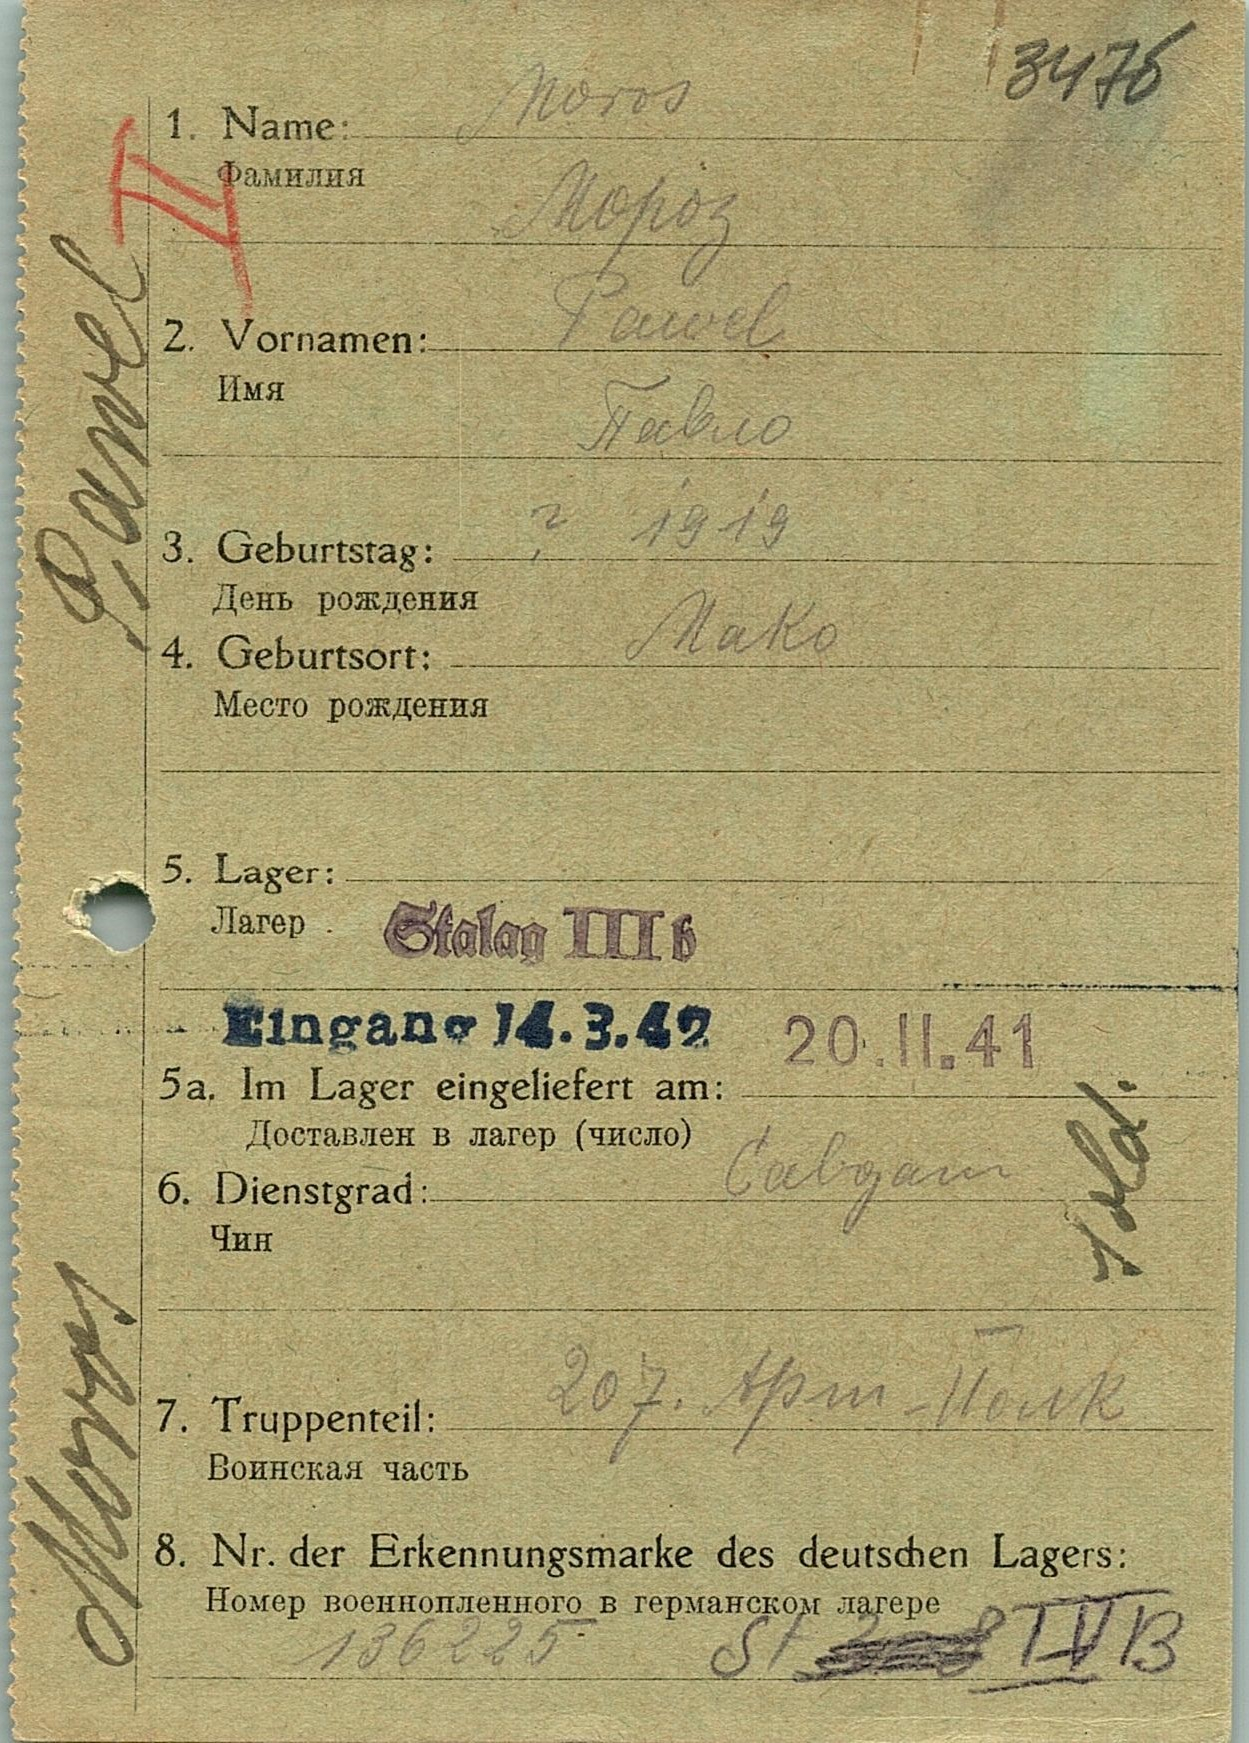 3475
1. Name: Moros
Фамилия
Мороз
II
2. Vornamen: Pawel
Имя
Павло
3. Geburtstag: ? 1919
День рождения
4. Geburtsort: Мако
Место рождения
5. Lager:
Лагер
Stalag III b
Eingang 14.3.42 20.11.41
5a. Im Lager eingeliefert am:
Доставлен в лагер (число)
6. Dienstgrad: Салдат
Чин
Sold.
7. Truppenteil: 207. Арт-Полк
Воинская часть
8. Nr. der Erkennungsmarke des deutschen Lagers:
Номер военнопленного в германском лагере
136225 St IV B
Moros, Pawel